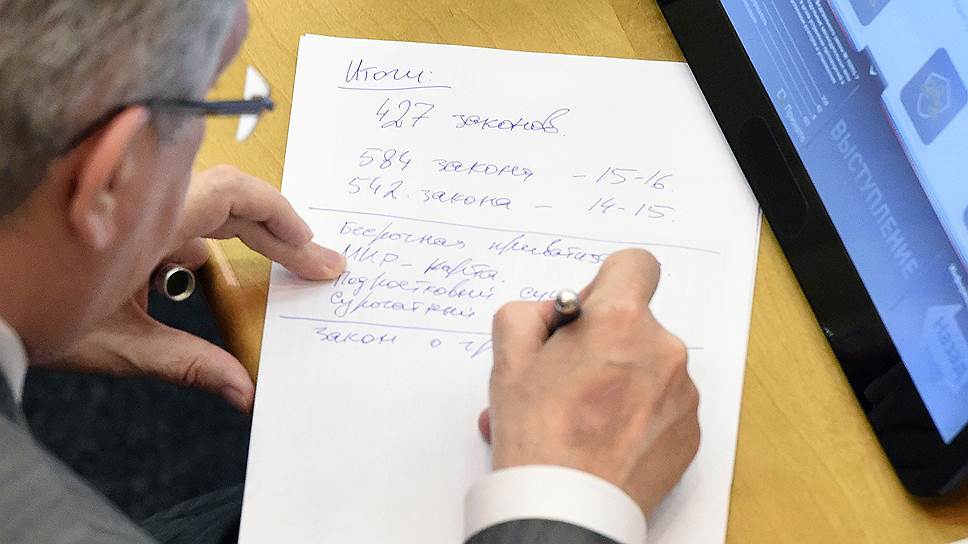 Итоги:
427 законов.
584 законя - 15-16.
542. закона - 14-15.
Бессрочная приватиз
МИР - карта.
Подростковый суи
Сурогатный
закон о гр
ВЫСТУПЛЕНИЕ
Назад